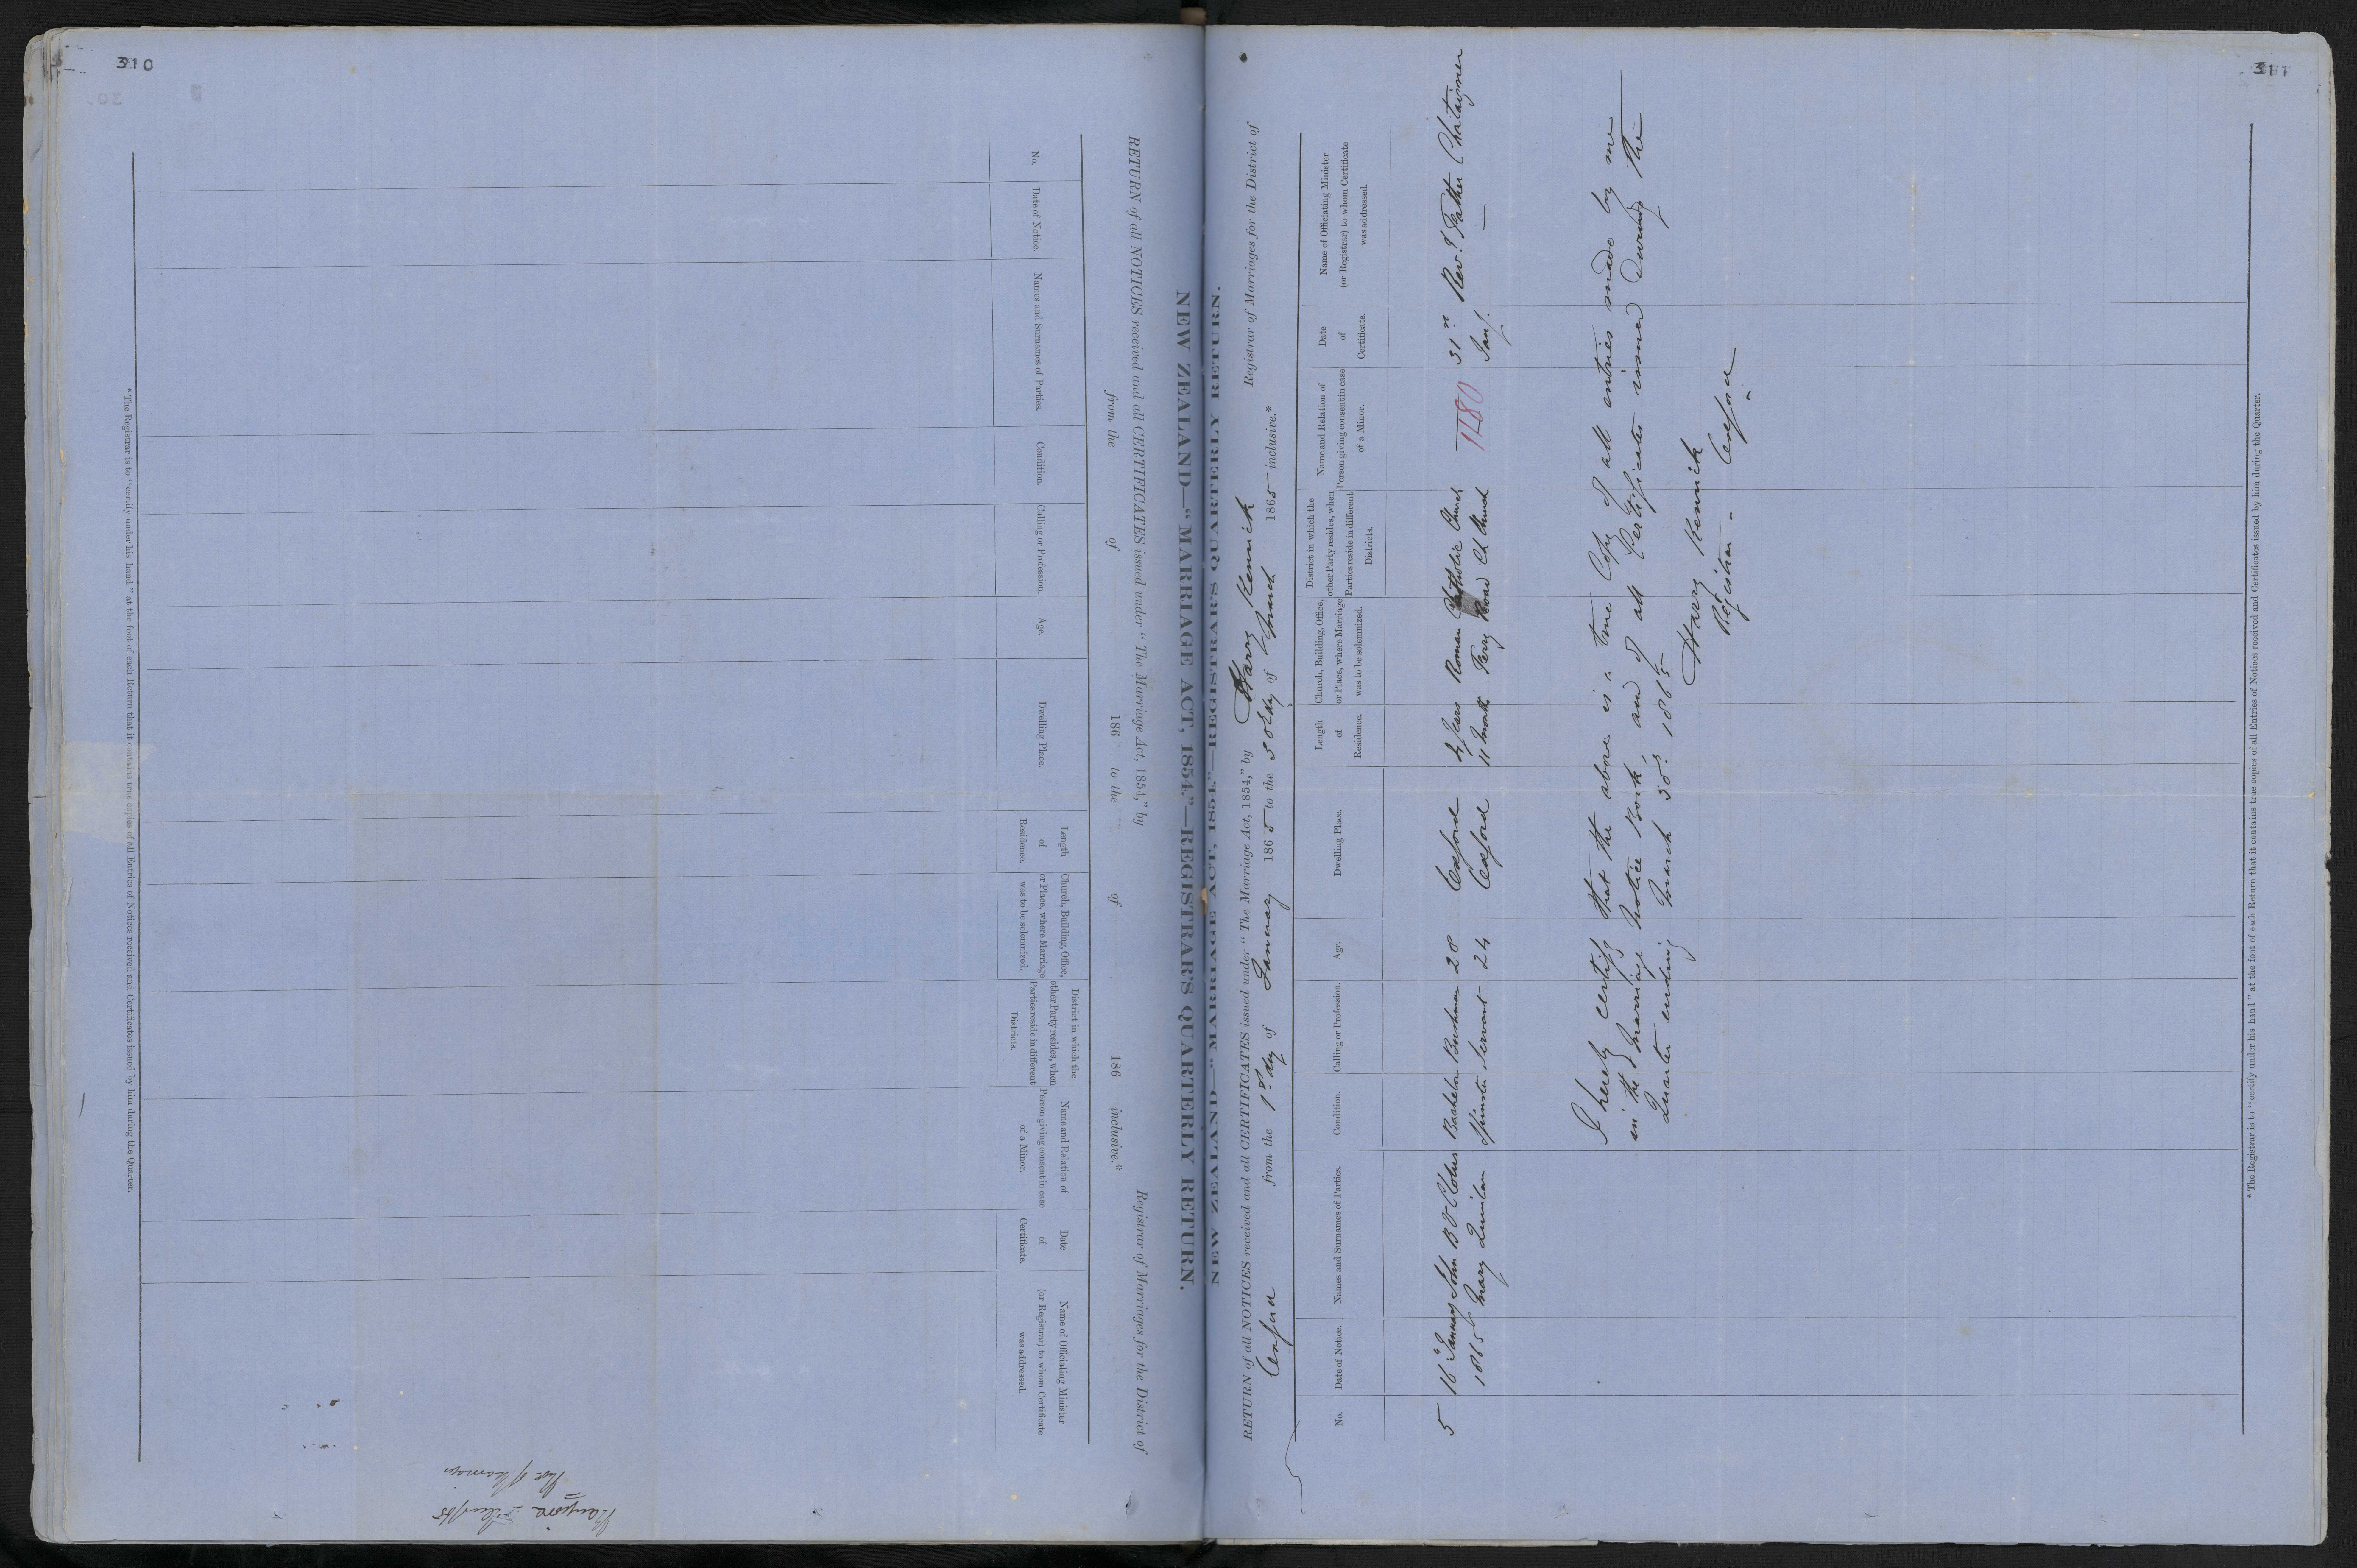 310
NEW ZEALAND—"MARRIAGE ACT, 1854."—REGISTRAR'S QUARTERLY RETURN.
RETURN of all NOTICES received and all CERTIFICATES issued under "The Marriage Act, 1854," by Registrar of Marriages for the District of
from the of 186 to the of 186 inclusive.*
No.
Date of Notice.
Names and Surnames of Parties.
Condition.
Calling or Profession.
Age.
Dwelling Place.
Length of Residence.
Church, Building, Office, or Place, where Marriage was to be solemnized.
District in which the other Party resides, when Parties reside in different Districts.
Name and Relation of Person giving consent in case of a Minor.
Date of Certificate.
Name of Officiating Minister (or Registrar) to whom Certificate was addressed.
* The Registrar is to "certify under his hand" at the foot of each Return that it contains true copies of all Entries of Notices received and Certificates issued by him during the Quarter.
311
NEW ZEALAND—"MARRIAGE ACT, 1854."—REGISTRAR'S QUARTERLY RETURN.
RETURN of all NOTICES received and all CERTIFICATES issued under "The Marriage Act, 1854," by Harry Kenrick Registrar of Marriages for the District of
Oxford from the 1st day of January 1865 to the 30th day of March 1865 inclusive.*
No.
Date of Notice.
Names and Surnames of Parties.
Condition.
Calling or Profession.
Age.
Dwelling Place.
Length of Residence.
Church, Building, Office, or Place, where Marriage was to be solemnized.
District in which the other Party resides, when Parties reside in different Districts.
Name and Relation of Person giving consent in case of a Minor.
Date of Certificate.
Name of Officiating Minister (or Registrar) to whom Certificate was addressed.
5 16th January John Bachelor Bushman 28 Oxford 4 years Roman Catholic Church 1180 31st Revd. Father Chataigner
1865 Mary Quinlan Spinster Servant 24 Oxford 11 months Ferry Road Ch Church Jany.
I hereby certify that the above is a true Copy of all entries made by me
in the Marriage Notice Book, and of all Certificates issued during the
Quarter ending March 30th 1865
Harry Kenrick
Registrar - Oxford
* The Registrar is to "certify under his hand" at the foot of each Return that it contains true copies of all Entries of Notices received and Certificates issued by him during the Quarter.